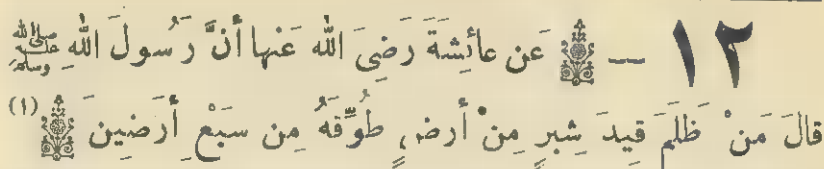 ١٢ — عَن عائِشَةَ رَضِيَ اللهُ عَنها أنَّ رَسُولَ اللهِ ﷺ
قالَ مَنْ ظَلَمَ قِيدَ شِبرٍ مِنْ أرضٍ طُوِّقَهُ مِن سبَعْ ِ أرَضِين َ (١)